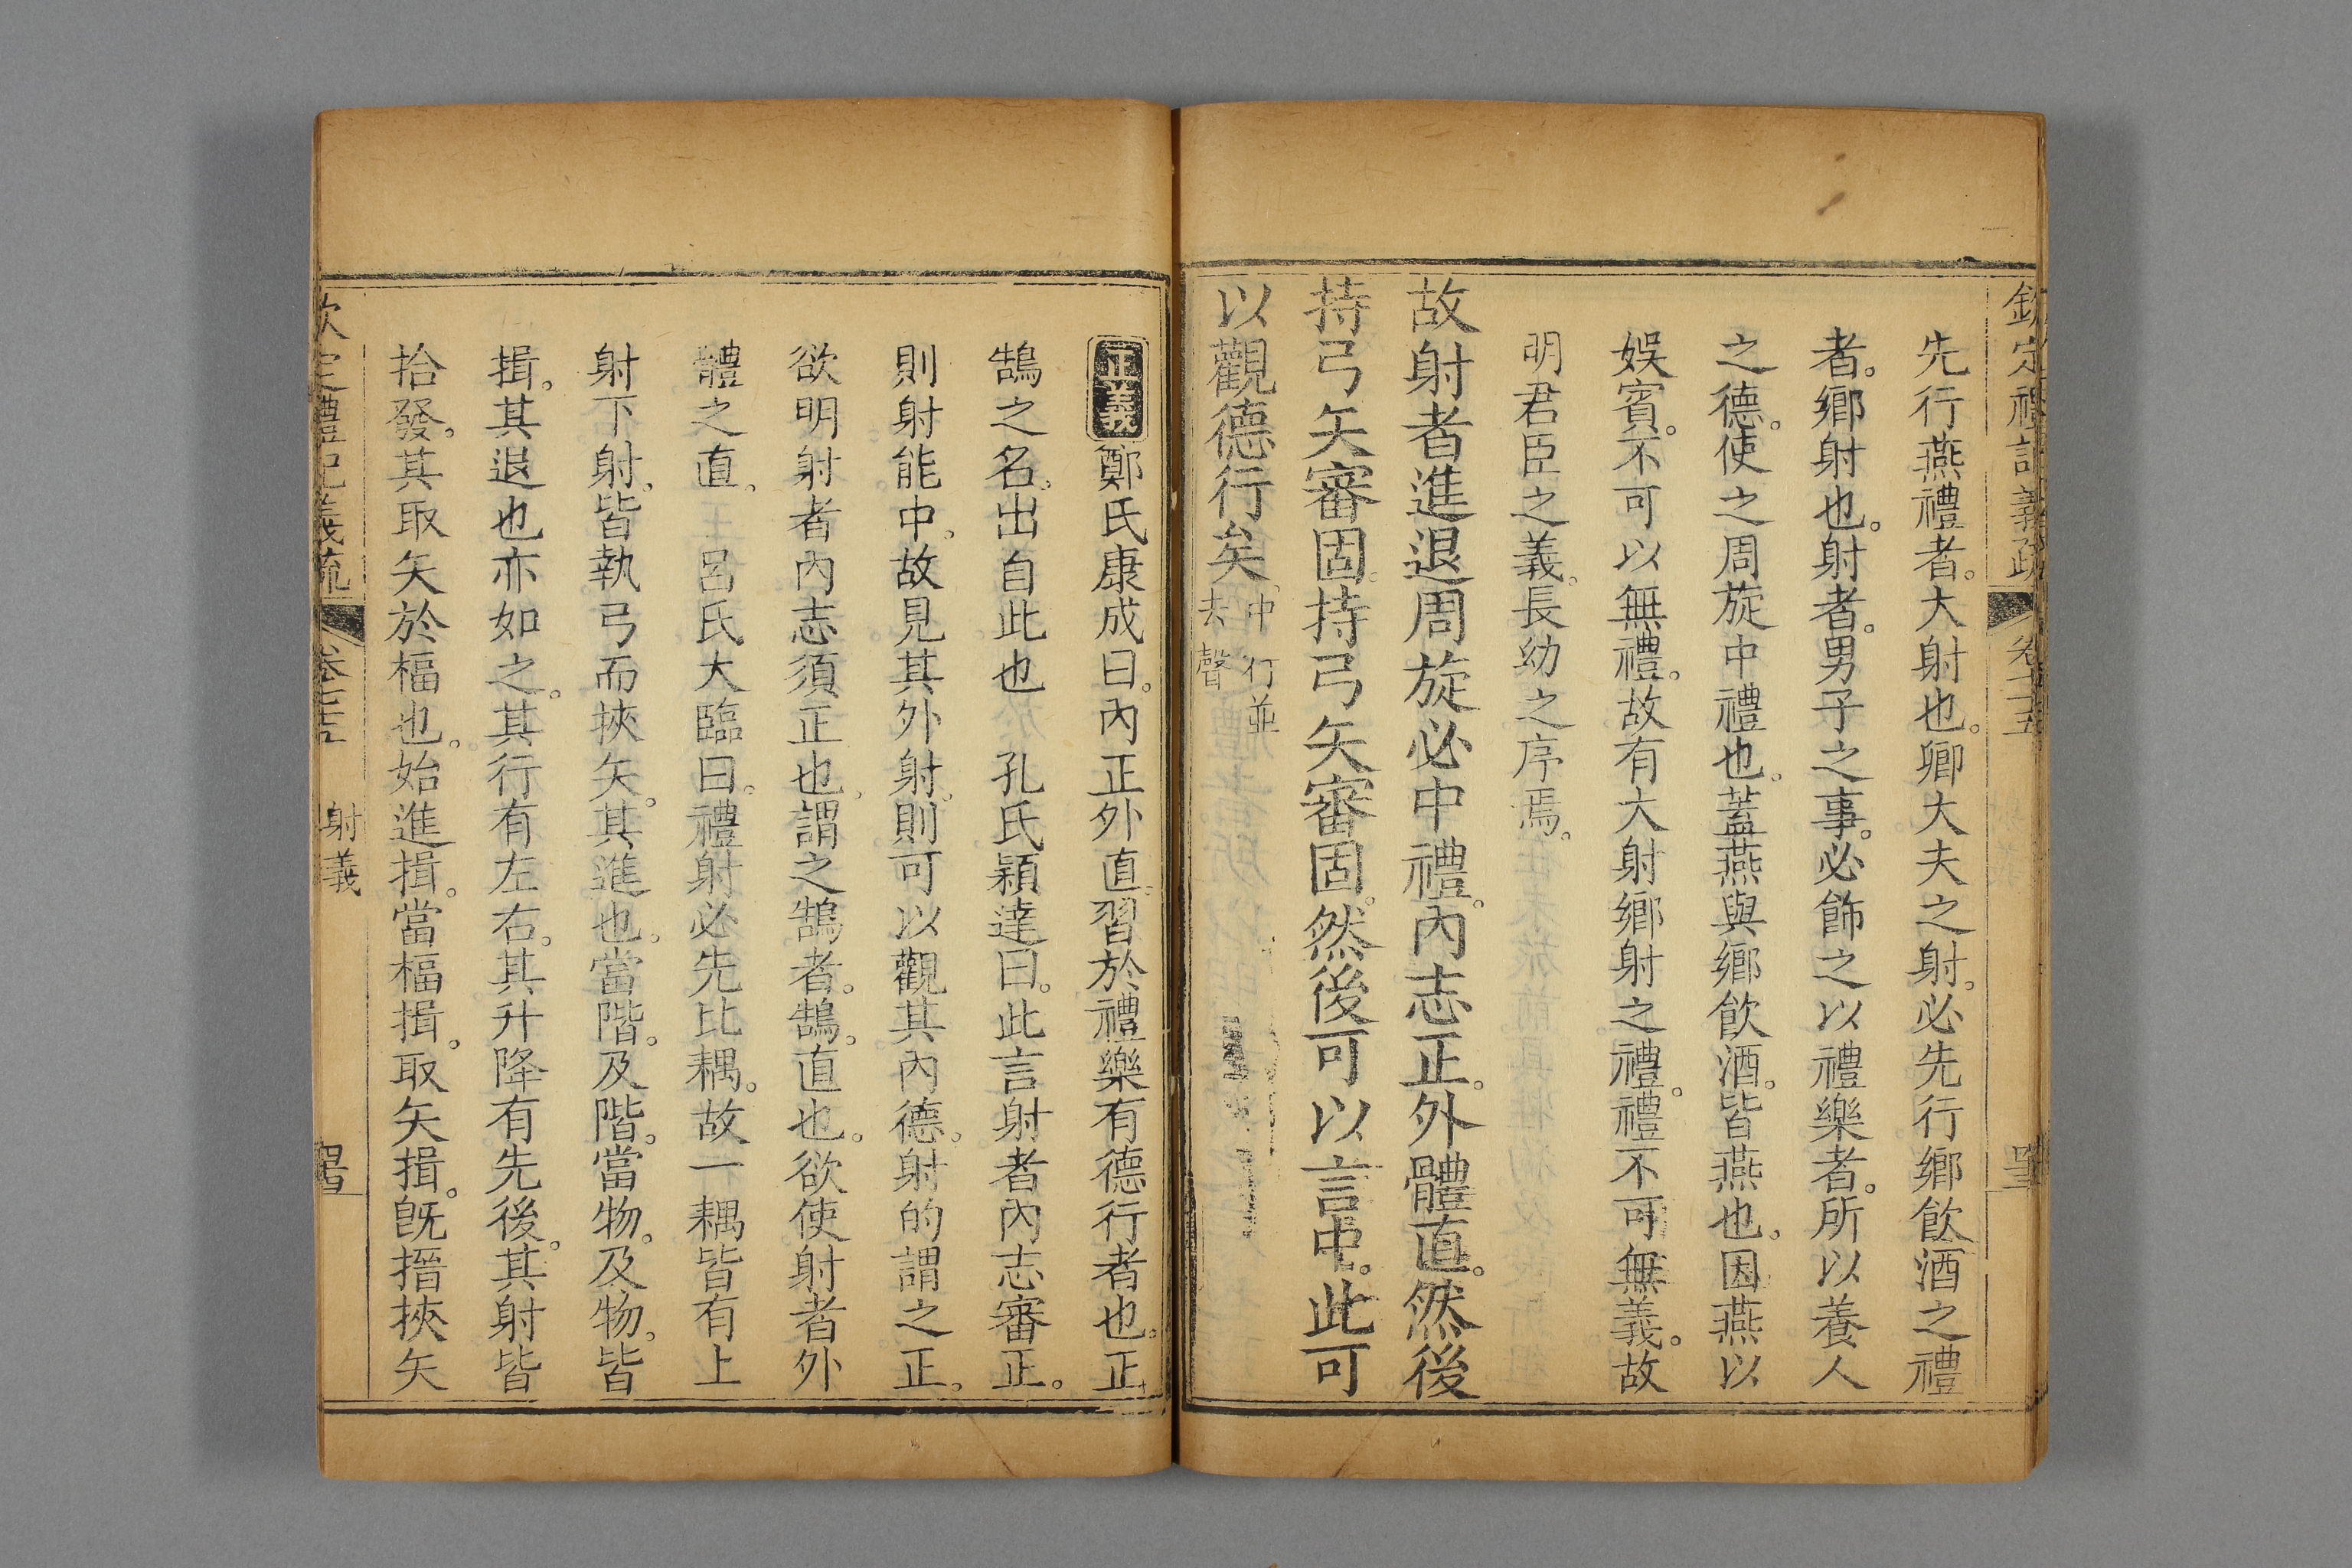 先行燕禮者。大射也。卿大夫之射。必先行鄉飲酒之禮
者。鄉射也。射者。男子之事。必飾之以禮樂者。所以養人
之德。使之周旋中禮也。蓋燕與鄉飲酒。皆燕也。因燕以
娛賓。不可以無禮。故有大射鄉射之禮。禮不可無義。故
明君臣之義。長幼之序焉。
故射者進退周旋必中禮。內志正。外體直。然後
持弓矢審固。持弓矢審固。然後可以言中。此可
以觀德行矣。中行並
去聲
正義鄭氏康成曰。內正外直。習於禮樂有德行者也。正
鵠之名。出自此也　孔氏穎達曰。此言射者內志審正。
則射能中。故見其外射。則可以觀其內德。射的謂之正。
欲明射者內志須正也。謂之鵠者。鵠。直也。欲使射者外
體之直。　呂氏大臨曰。禮射必先比耦。故一耦皆有上
射下射。皆執弓而挾矢。其進也。當階。及階。當物。及物。皆
揖。其退也亦如之。其行有左右。其升降有先後。其射皆
拾發。其取矢於楅也。始進揖。當楅揖。取矢揖。旣搢挾矢
射義